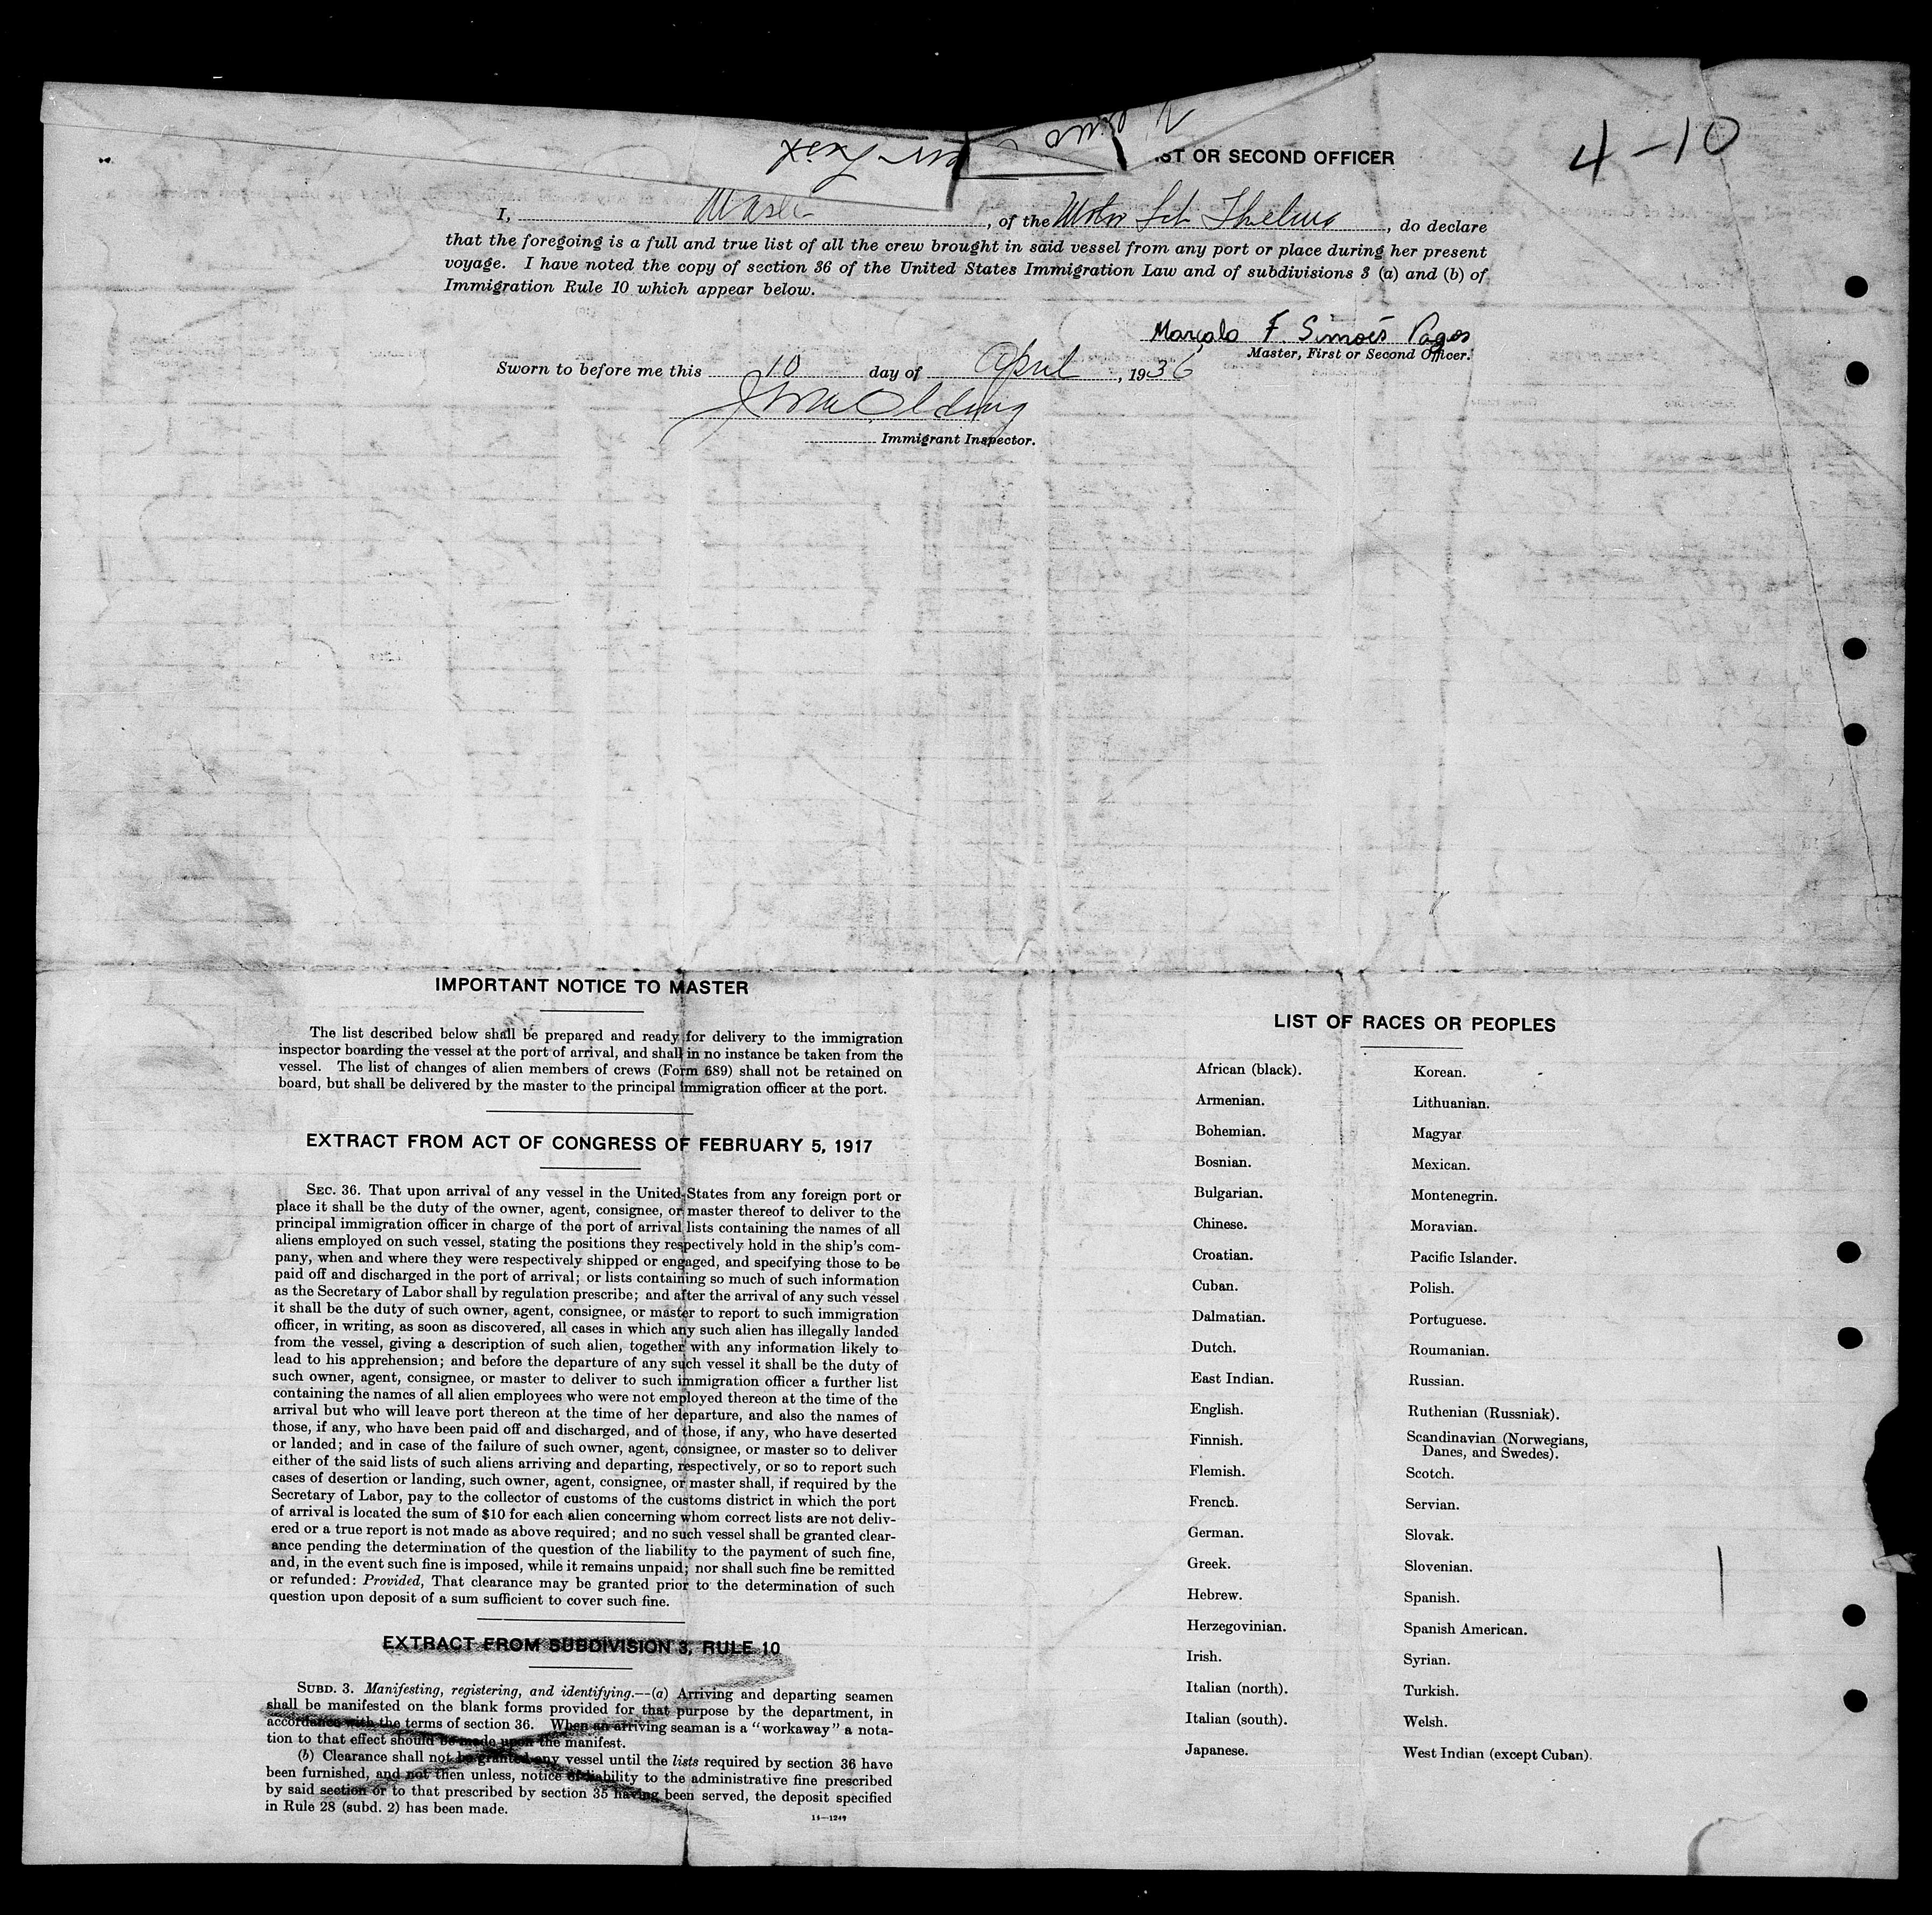 4-10
ST OR SECOND OFFICER
I, Master, of the Motor Sch Thelma, do declare
that the foregoing is a full and true list of all the crew brought in said vessel from any port or place during her present
voyage. I have noted the copy of section 36 of the United States Immigration Law and of subdivisions 3 (a) and (b) of
Immigration Rule 10 which appear below.
Marçalo F. Simoes Pagos
Master, First or Second Officer.
Sworn to before me this 10 day of April, 1936
Immigrant Inspector.
IMPORTANT NOTICE TO MASTER
The list described below shall be prepared and ready for delivery to the immigration
inspector boarding the vessel at the port of arrival, and shall in no instance be taken from the
vessel. The list of changes of alien members of crews (Form 689) shall not be retained on
board, but shall be delivered by the master to the principal immigration officer at the port.
EXTRACT FROM ACT OF CONGRESS OF FEBRUARY 5, 1917
SEC. 36. That upon arrival of any vessel in the United States from any foreign port or
place it shall be the duty of the owner, agent, consignee, or master thereof to deliver to the
principal immigration officer in charge of the port of arrival lists containing the names of all
aliens employed on such vessel, stating the positions they respectively hold in the ship's com-
pany, when and where they were respectively shipped or engaged, and specifying those to be
paid off and discharged in the port of arrival; or lists containing so much of such information
as the Secretary of Labor shall by regulation prescribe; and after the arrival of any such vessel
it shall be the duty of such owner, agent, consignee, or master to report to such immigration
officer, in writing, as soon as discovered, all cases in which any such alien has illegally landed
from the vessel, giving a description of such alien, together with any information likely to
lead to his apprehension; and before the departure of any such vessel it shall be the duty of
such owner, agent, consignee, or master to deliver to such immigration officer a further list
containing the names of all alien employees who were not employed thereon at the time of the
arrival but who will leave port thereon at the time of her departure, and also the names of
those, if any, who have been paid off and discharged, and of those, if any, who have deserted
or landed; and in case of the failure of such owner, agent, consignee, or master so to deliver
either of the said lists of such aliens arriving and departing, respectively, or so to report such
cases of desertion or landing, such owner, agent, consignee, or master shall, if required by the
Secretary of Labor, pay to the collector of customs of the customs district in which the port
of arrival is located the sum of $10 for each alien concerning whom correct lists are not deliv-
ered or a true report is not made as above required; and no such vessel shall be granted clear-
ance pending the determination of the question of the liability to the payment of such fine,
and, in the event such fine is imposed, while it remains unpaid; nor shall such fine be remitted
or refunded: Provided, That clearance may be granted prior to the determination of such
question upon deposit of a sum sufficient to cover such fine.
EXTRACT FROM SUBDIVISION 3, RULE 10
SUBD. 3. Manifesting, registering, and identifying.—(a) Arriving and departing seamen
shall be manifested on the blank forms provided for that purpose by the department, in
accordance with the terms of section 36. When an arriving seaman is a "workaway" a nota-
tion to that effect should be made upon the manifest.
(b) Clearance shall not be granted any vessel until the lists required by section 36 have
been furnished, and not then unless, notice of liability to the administrative fine prescribed
by said section or to that prescribed by section 35 having been served, the deposit specified
in Rule 28 (subd. 2) has been made.
14—1249
LIST OF RACES OR PEOPLES
African (black).
Armenian.
Bohemian.
Bosnian.
Bulgarian.
Chinese.
Croatian.
Cuban.
Dalmatian.
Dutch.
East Indian.
English.
Finnish.
Flemish.
French.
German.
Greek.
Hebrew.
Herzegovinian.
Irish.
Italian (north).
Italian (south).
Japanese.
Korean.
Lithuanian.
Magyar
Mexican.
Montenegrin.
Moravian.
Pacific Islander.
Polish.
Portuguese.
Roumanian.
Russian.
Ruthenian (Russniak).
Scandinavian (Norwegians,
Danes, and Swedes).
Scotch.
Servian.
Slovak.
Slovenian.
Spanish.
Spanish American.
Syrian.
Turkish.
Welsh.
West Indian (except Cuban).